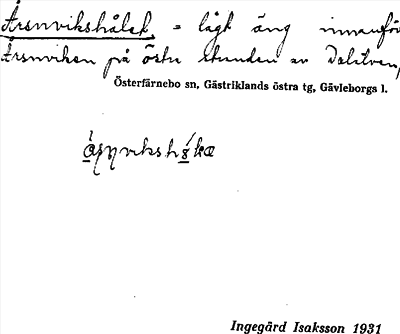 Årsnvikshålet, = lågt äng innanför
Årsnviken på östra stranden av Dalälven,
Österfärnebo sn, Gästriklands östra tg, Gävleborgs l.
Ingegård Isaksson 1931